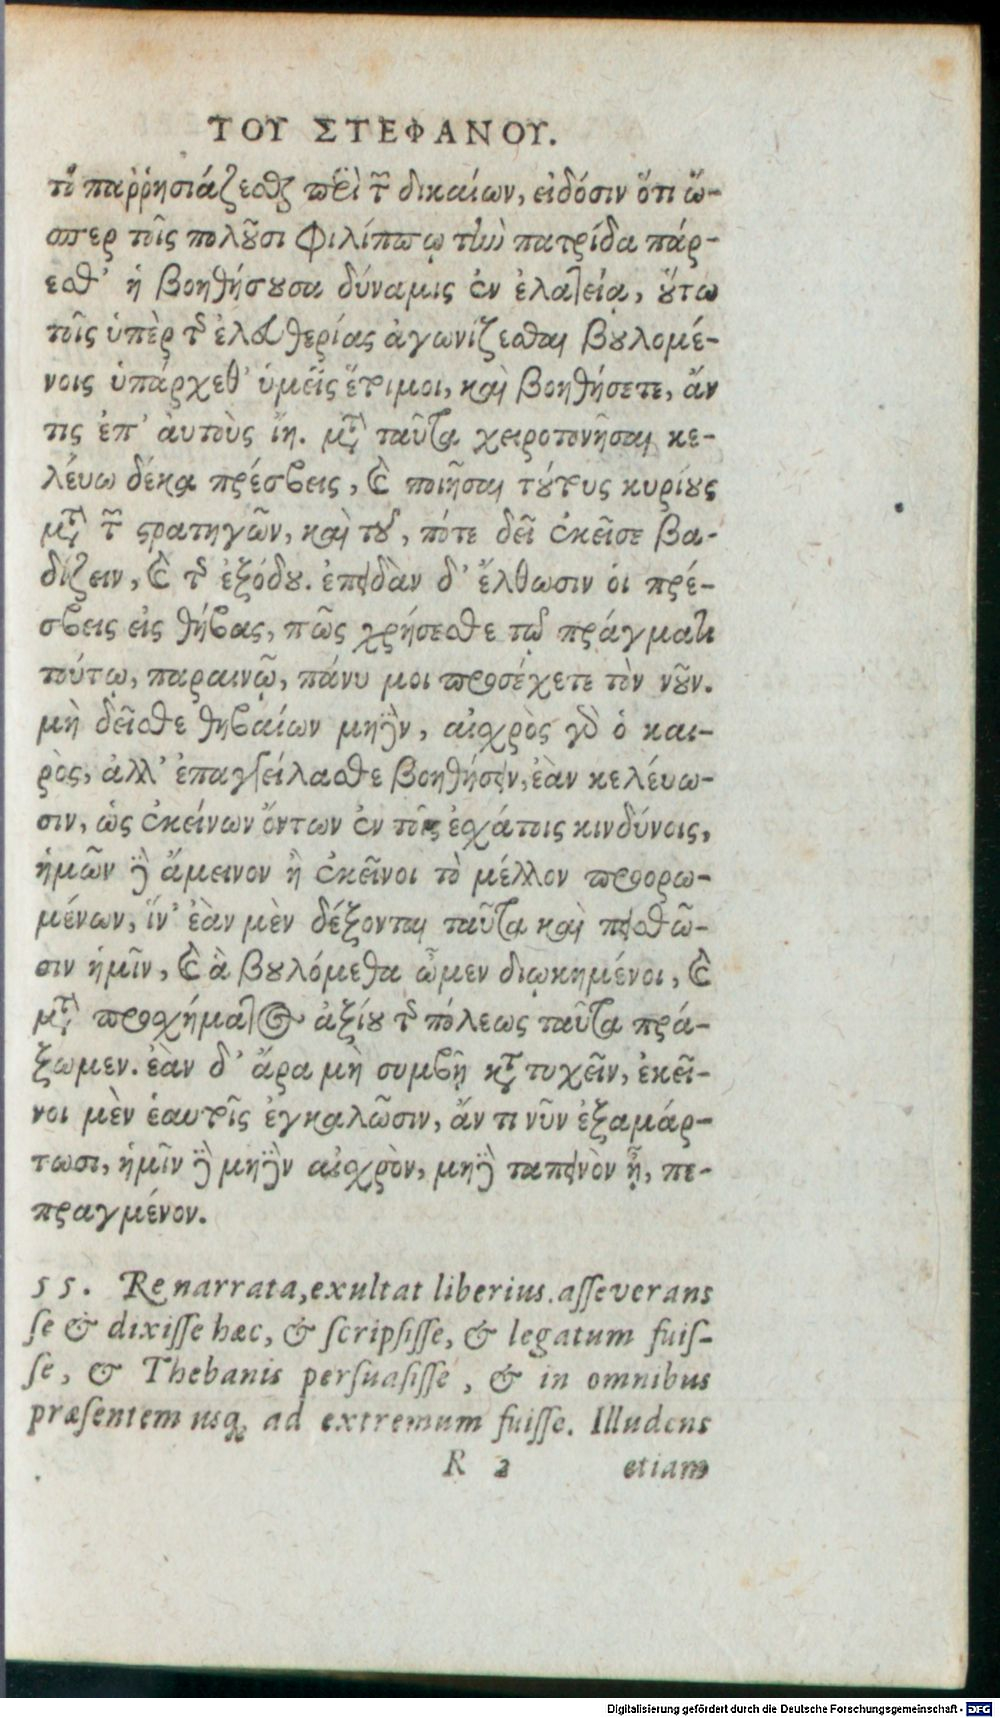 ΤΟΥ ΣΤΕΦΑΝΟΥ.
τὸ παῤῥησιάζεσθαι περὶ τῶν δικαίων, εἰδόσιν ὅτι ὥ-
σπερ τοῖς πολοῦσι Φιλίππῳ τὴν πατρίδα πάρ-
εσθ' ἡ βοηθήσουσα δύναμις ἐν ἐλατείᾳ, οὕτω
τοῖς ὑπὲρ τῆς ἐλευθερίας ἀγωνίζεσθαι βουλομέ-
νοις ὑπάρχεθ' ὑμεῖς ἕτοιμοι, καὶ βοηθήσετε, ἄν
τις ἐπ' αὐτοὺς ἴῃ. μετὰ ταῦτα χειροτονῆσαι κε-
λεύω δέκα πρέσβεις, καὶ ποιῆσαι τούτους κυρίους
μετὰ τῶν στρατηγῶν, καὶ τοῦ, πότε δεῖ ἐκεῖσε βα-
δίζειν, καὶ τῆς ἐξόδου. ἐπειδὰν δ' ἔλθωσιν οἱ πρέ-
σβεις εἰς θήβας, πῶς χρήσεσθε τῷ πράγματι
τούτῳ, παραινῶ, πάνυ μοι προσέχετε τὸν νοῦν.
μὴ δεῖσθε θηβαίων μηδὲν, αἰσχρὸς γὰρ ὁ και-
ρὸς, ἀλλ' ἐπαγγείλασθε βοηθήσειν, ἐὰν κελεύω-
σιν, ὡς ἐκείνων ὄντων ἐν τοῖς ἐσχάτοις κινδύνοις,
ἡμῶν δὲ ἄμεινον ἢ ἐκεῖνοι τὸ μέλλον προορω-
μένων, ἵν' ἐὰν μὲν δέξονται ταῦτα καὶ πεισθῶ-
σιν ἡμῖν, καὶ ἃ βουλόμεθα ὦμεν διῳκημένοι, καὶ
μετὰ προσχήματος ἀξίου τῆς πόλεως ταῦτα πρά-
ξωμεν. ἐὰν δ' ἄρα μὴ συμβῇ κατατυχεῖν, ἐκεῖ-
νοι μὲν ἑαυτοῖς ἐγκαλῶσιν, ἄν τι νῦν ἐξαμάρ-
τωσι, ἡμῖν δὲ μηδὲν αἰσχρὸν, μηδὲ ταπεινὸν ᾖ, πε-
πραγμένον.
55. Re narrata, exultat liberius. asseverans
se & dixisse hæc, & scripsisse, & legatum fuis-
se, & Thebanis persuasisse, & in omnibus
præsentem usq; ad extremum fuisse. Illudens
R 2 etiam
Digitalisierung gefördert durch die Deutsche Forschungsgemeinschaft - DFG